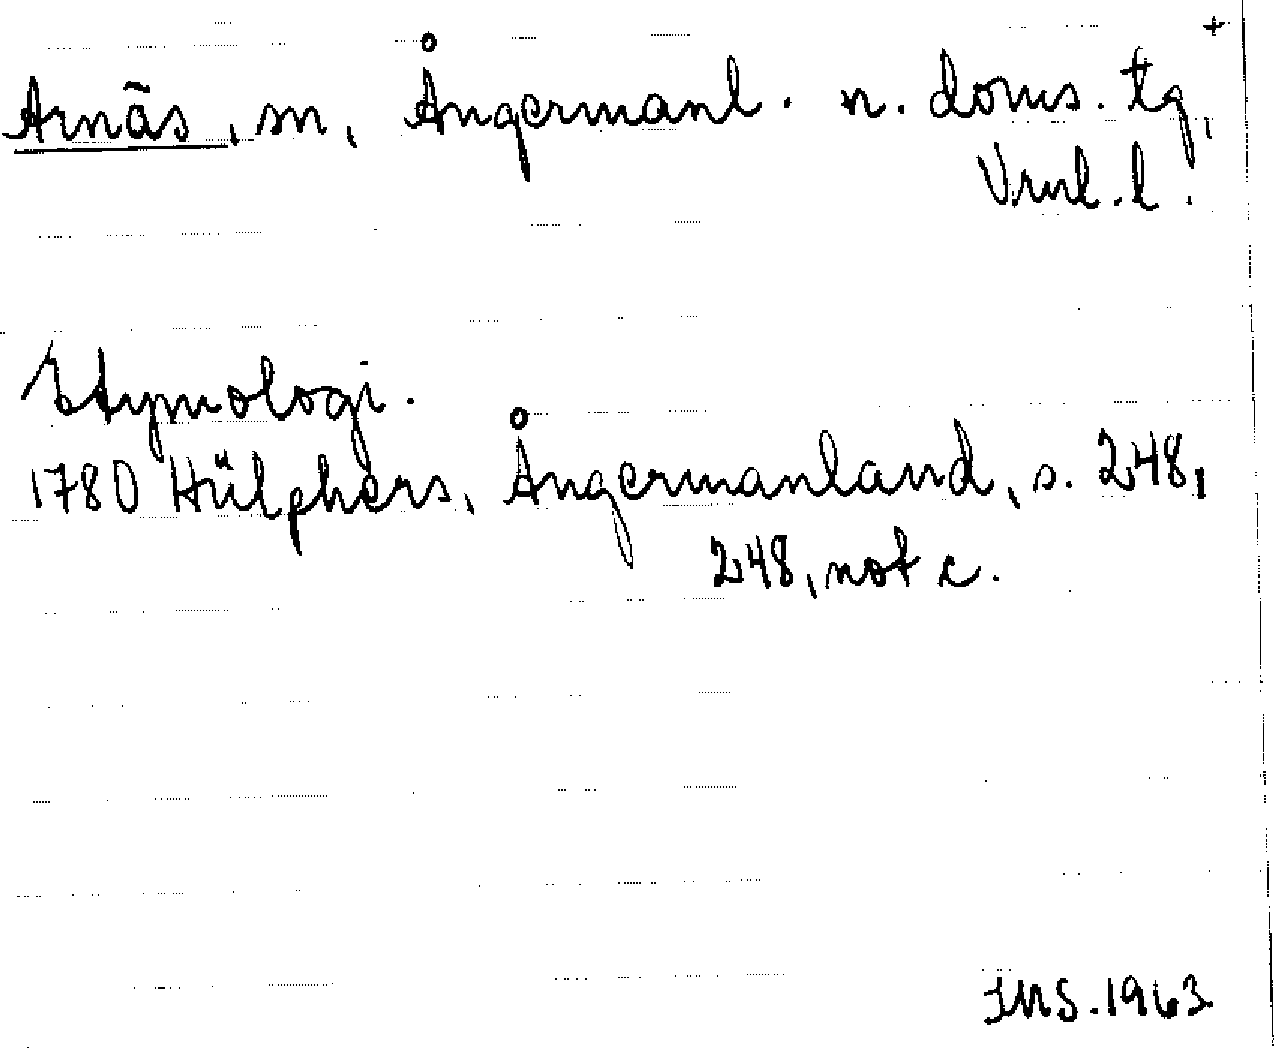 +
Arnäs, sn, Ångermanl. n. doms. tg,
Vrnl. l.
Etymologi.
1780 Hülphers, Ångermanland, s. 248,
248, not c.
IMS. 1963